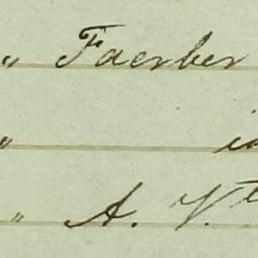 " Faerber
"
" A. V.